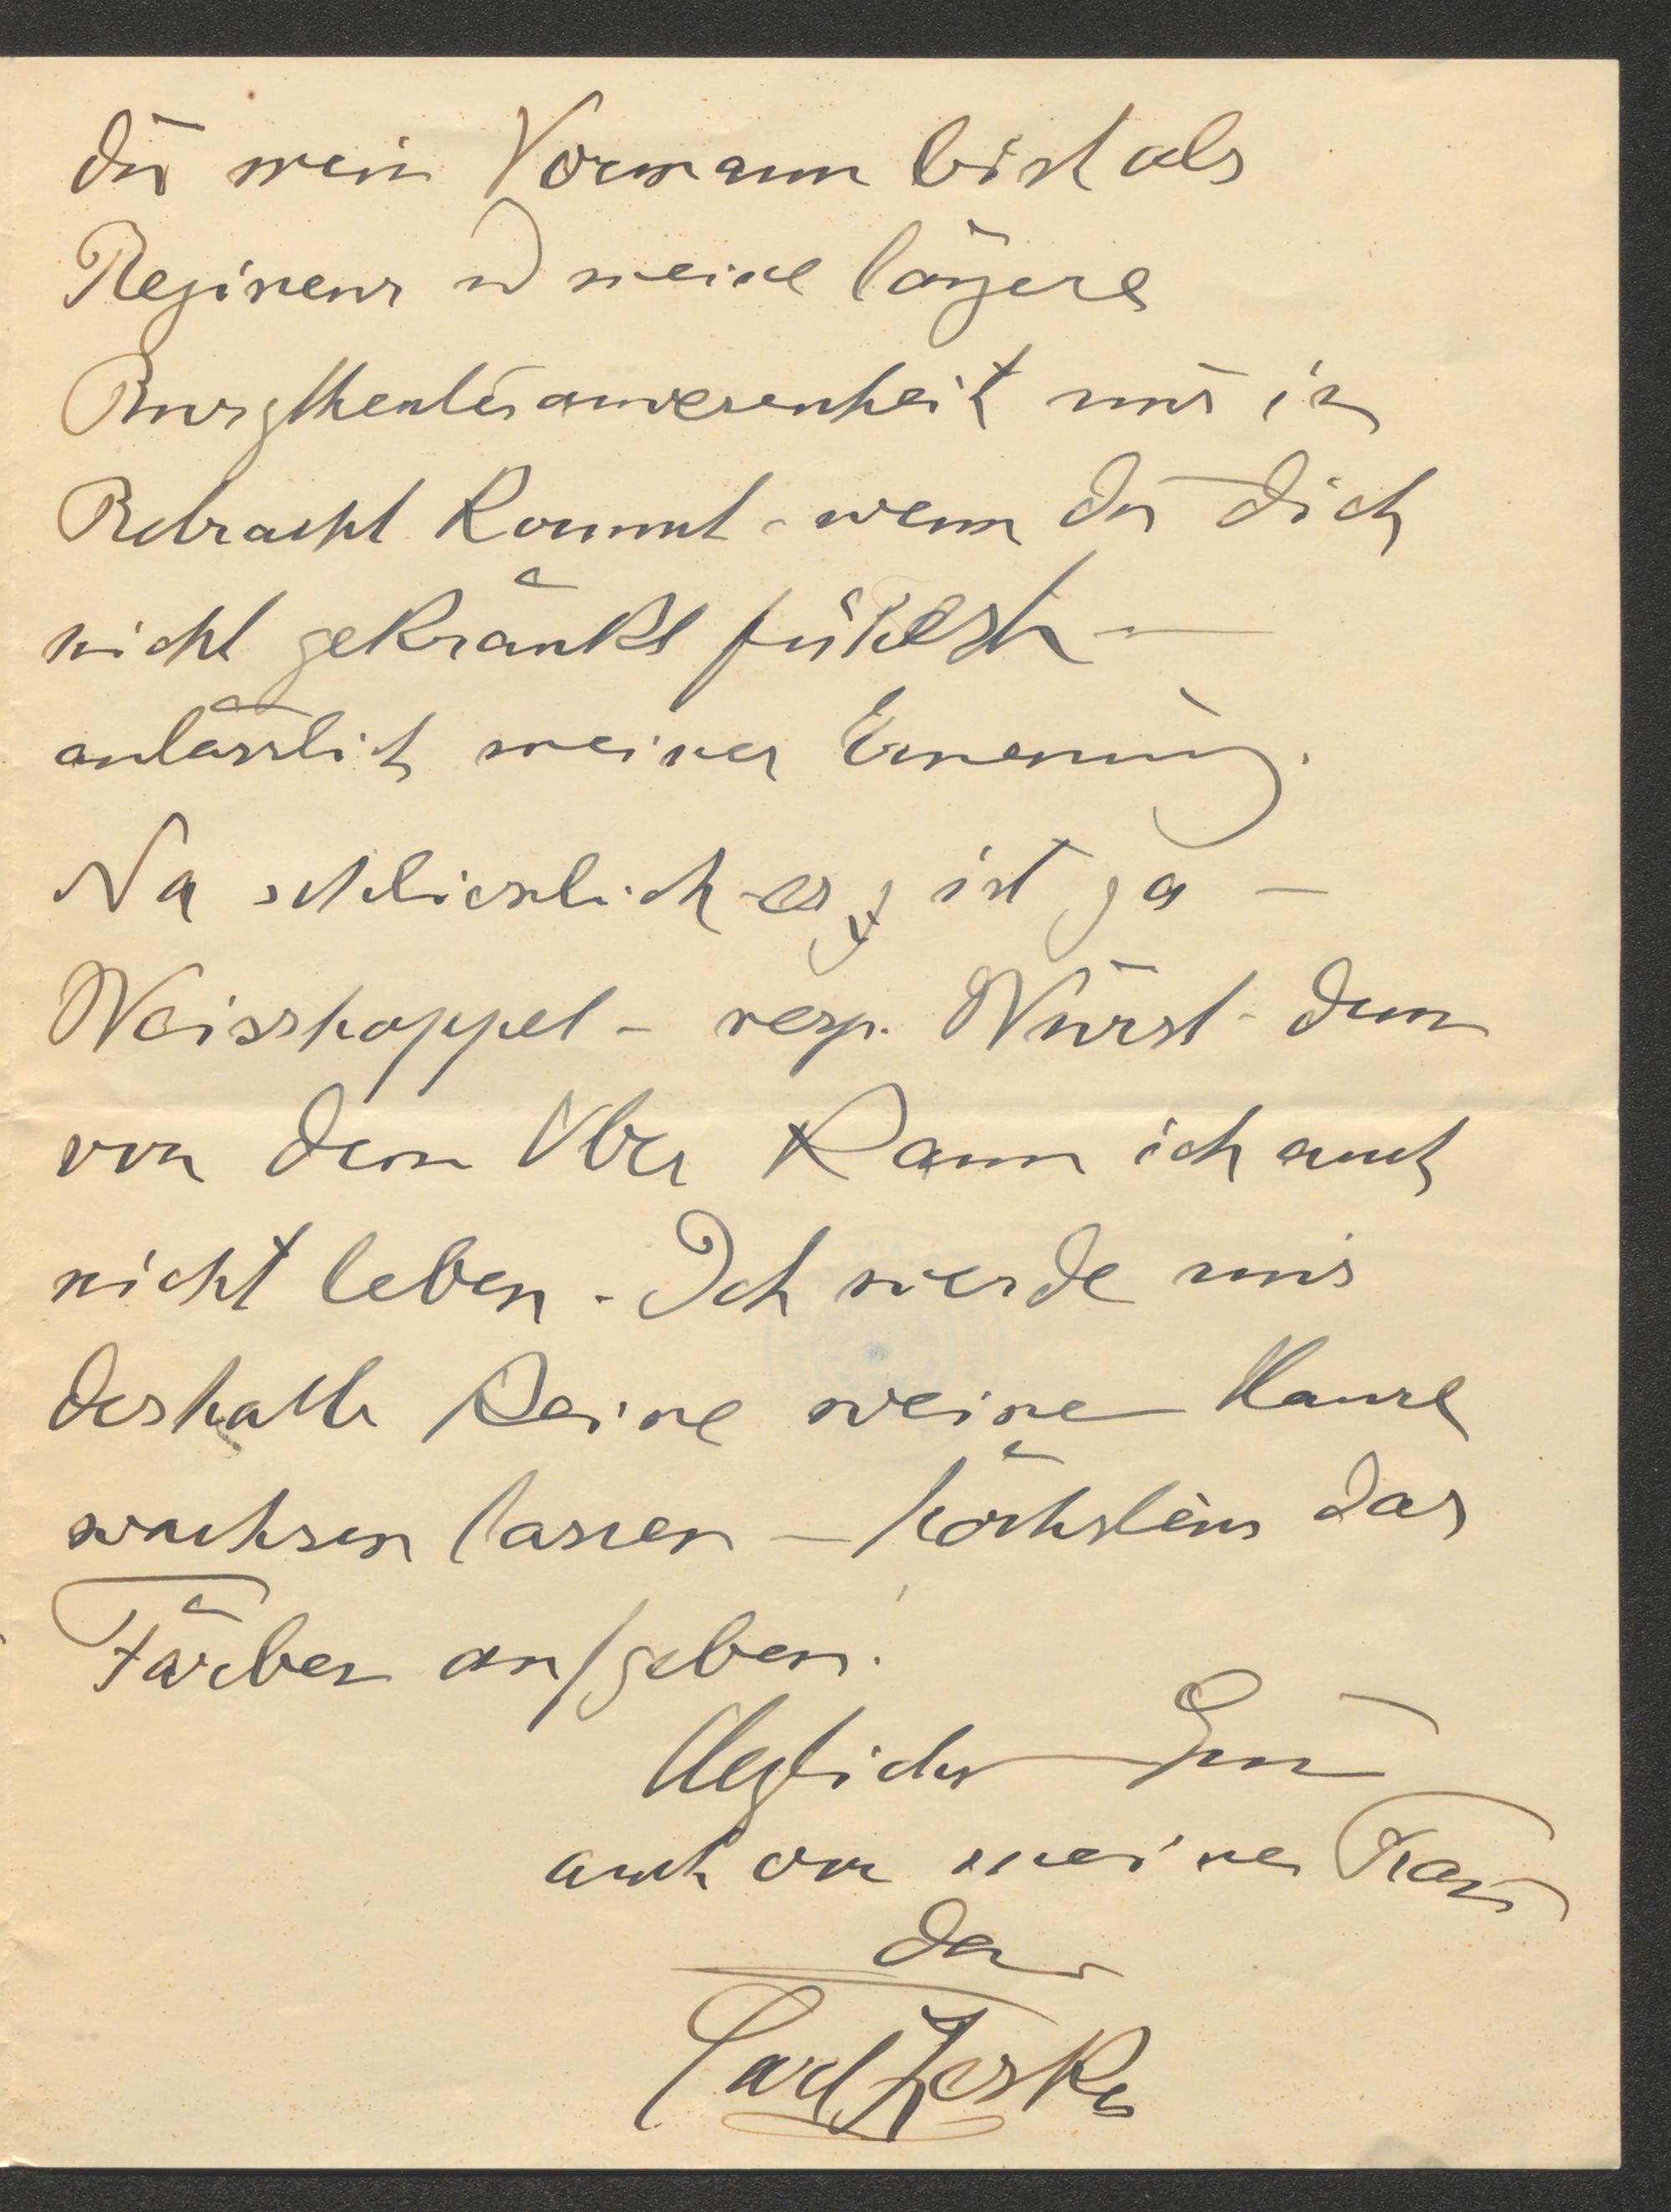 Du mein Vormann bist als
Regisseur u meine längere
Burgtheateranwesenheit nur in
Betracht kommt – wenn Du Dich
nicht gekränkt fühlst –
anlässlich meiner Ernennung.
Na schliesslich es ist ja –
Weisskoppel – resp. Wurst – denn
von dem Ober kann ich auch
nicht leben. Ich werde mir
deshalb keine weissen Haare
wachsen lassen – höchstens das
Färben aufgeben.
Herzlichen Gruss
auch von meiner Frau
Dein
Carl Zeska